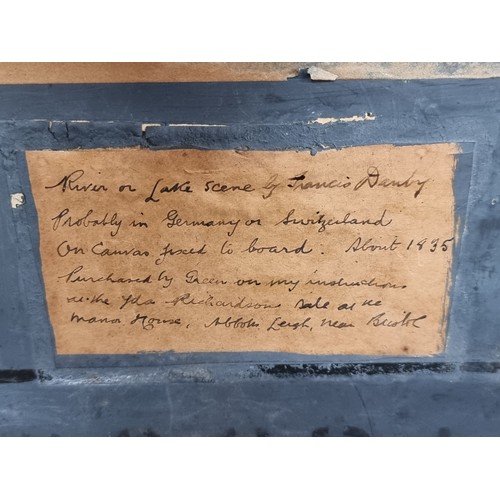 River or Lake scene by Francis Danby
Probably in Germany or Switzerland
On Canvas fixed to board. About 1835
Purchased by Green on my instructions
at the Richardson sale at the
Manor House, Abbots Leigh, near Bristol